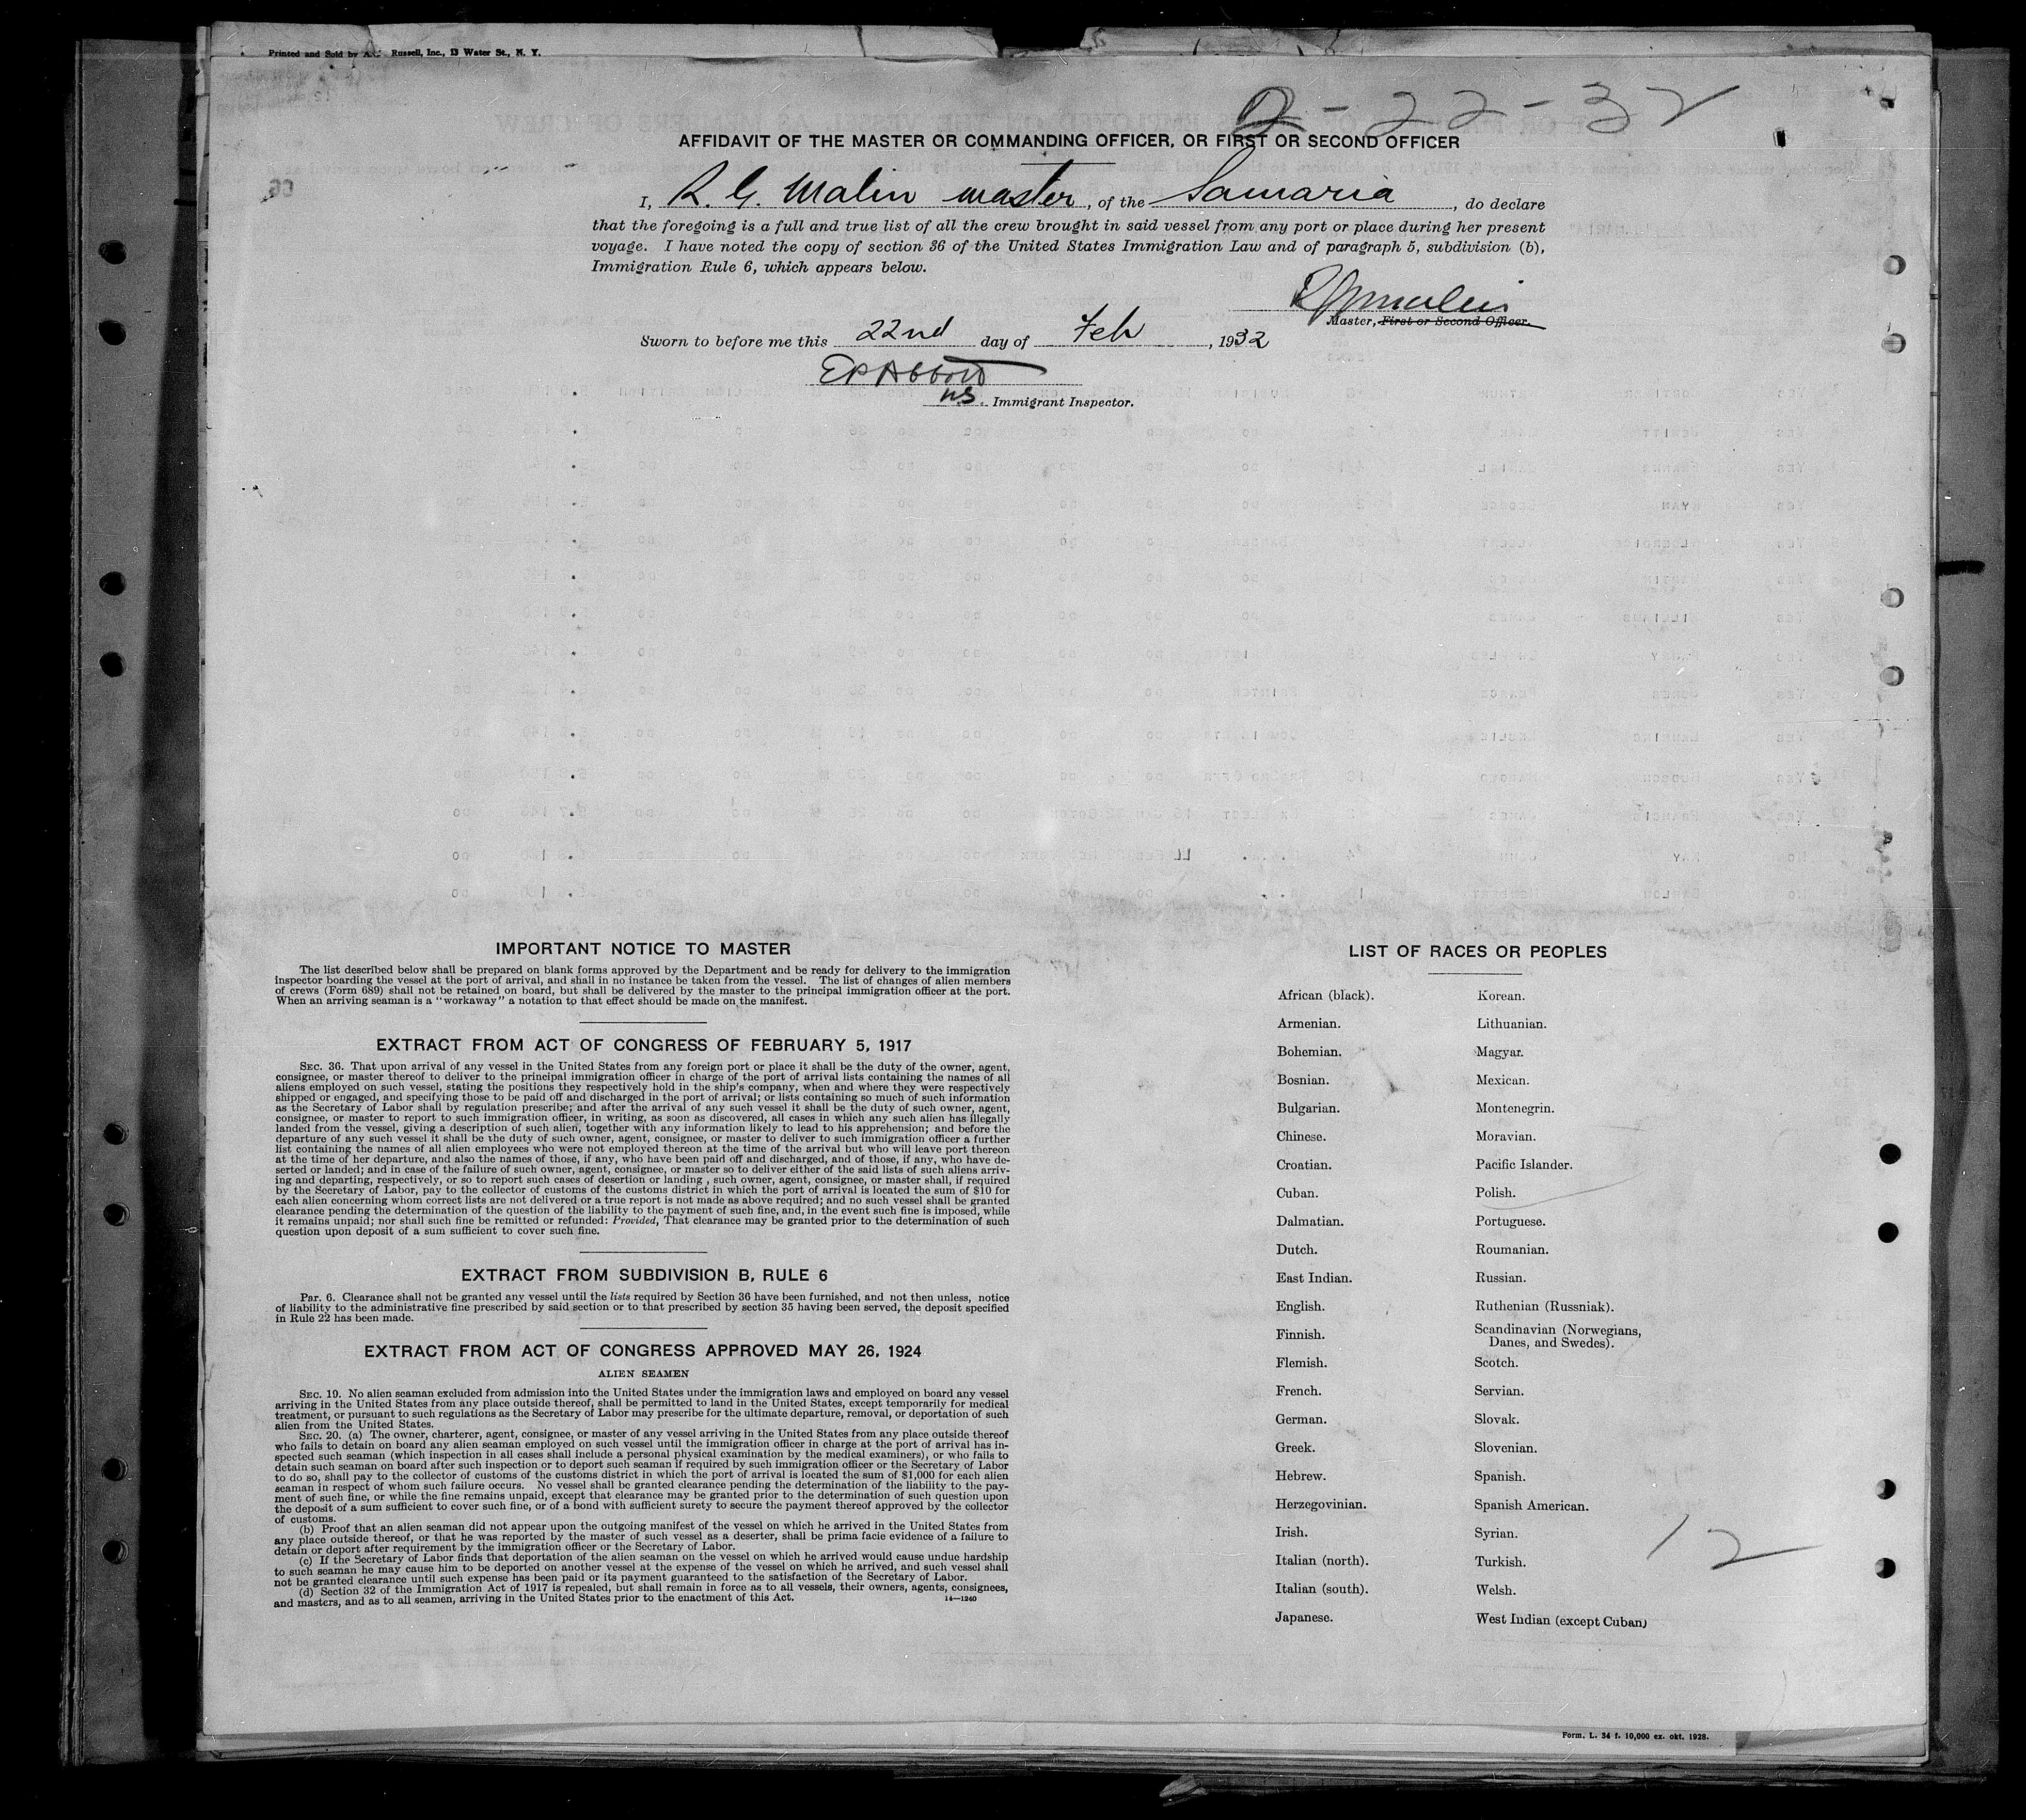 Printed and Sold by A. Russell, Inc., 13 Water St., N. Y.
2-22-32
AFFIDAVIT OF THE MASTER OR COMMANDING OFFICER, OR FIRST OR SECOND OFFICER
I, R. G. Malin master, of the Samaria, do declare
that the foregoing is a full and true list of all the crew brought in said vessel from any port or place during her present
voyage. I have noted the copy of section 36 of the United States Immigration Law and of paragraph 5, subdivision (b),
Immigration Rule 6, which appears below.
R G Malin
Master, First or Second Officer.
Sworn to before me this 22nd day of Feb, 1932
E P Abbott
U.S. Immigrant Inspector.
IMPORTANT NOTICE TO MASTER
The list described below shall be prepared on blank forms approved by the Department and be ready for delivery to the immigration
inspector boarding the vessel at the port of arrival, and shall in no instance be taken from the vessel. The list of changes of alien members
of crews (Form 689) shall not be retained on board, but shall be delivered by the master to the principal immigration officer at the port.
When an arriving seaman is a "workaway" a notation to that effect should be made on the manifest.
EXTRACT FROM ACT OF CONGRESS OF FEBRUARY 5, 1917
SEC. 36. That upon arrival of any vessel in the United States from any foreign port or place it shall be the duty of the owner, agent,
consignee, or master thereof to deliver to the principal immigration officer in charge of the port of arrival lists containing the names of all
aliens employed on such vessel, stating the positions they respectively hold in the ship's company, when and where they were respectively
shipped or engaged, and specifying those to be paid off and discharged in the port of arrival; or lists containing so much of such information
as the Secretary of Labor shall by regulation prescribe; and after the arrival of any such vessel it shall be the duty of such owner, agent,
consignee, or master to report to such immigration officer, in writing, as soon as discovered, all cases in which any such alien has illegally
landed from the vessel, giving a description of such alien, together with any information likely to lead to his apprehension; and before the
departure of any such vessel it shall be the duty of such owner, agent, consignee, or master to deliver to such immigration officer a further
list containing the names of all alien employees who were not employed thereon at the time of the arrival but who will leave port thereon
at the time of her departure, and also the names of those, if any, who have been paid off and discharged, and of those, if any, who have de-
serted or landed; and in case of the failure of such owner, agent, consignee, or master so to deliver either of the said lists of such aliens arriv-
ing and departing, respectively, or so to report such cases of desertion or landing , such owner, agent, consignee, or master shall, if required
by the Secretary of Labor, pay to the collector of customs of the customs district in which the port of arrival is located the sum of $10 for
each alien concerning whom correct lists are not delivered or a true report is not made as above required; and no such vessel shall be granted
clearance pending the determination of the question of the liability to the payment of such fine, and, in the event such fine is imposed, while
it remains unpaid; nor shall such fine be remitted or refunded: Provided, That clearance may be granted prior to the determination of such
question upon deposit of a sum sufficient to cover such fine.
EXTRACT FROM SUBDIVISION B, RULE 6
PAR. 6. Clearance shall not be granted any vessel until the lists required by Section 36 have been furnished, and not then unless, notice
of liability to the administrative fine prescribed by said section or to that prescribed by section 35 having been served, the deposit specified
in Rule 22 has been made.
EXTRACT FROM ACT OF CONGRESS APPROVED MAY 26, 1924
ALIEN SEAMEN
SEC. 19. No alien seaman excluded from admission into the United States under the immigration laws and employed on board any vessel
arriving in the United States from any place outside thereof, shall be permitted to land in the United States, except temporarily for medical
treatment, or pursuant to such regulations as the Secretary of Labor may prescribe for the ultimate departure, removal, or deportation of such
alien from the United States.
SEC. 20. (a) The owner, charterer, agent, consignee, or master of any vessel arriving in the United States from any place outside thereof
who fails to detain on board any alien seaman employed on such vessel until the immigration officer in charge at the port of arrival has in-
spected such seaman (which inspection in all cases shall include a personal physical examination by the medical examiners), or who fails to
detain such seaman on board after such inspection or to deport such seaman if required by such immigration officer or the Secretary of Labor
to do so, shall pay to the collector of customs of the customs district in which the port of arrival is located the sum of $1,000 for each alien
seaman in respect of whom such failure occurs. No vessel shall be granted clearance pending the determination of the liability to the pay-
ment of such fine, or while the fine remains unpaid, except that clearance may be granted prior to the determination of such question upon
the deposit of a sum sufficient to cover such fine, or of a bond with sufficient surety to secure the payment thereof approved by the collector
of customs.
(b) Proof that an alien seaman did not appear upon the outgoing manifest of the vessel on which he arrived in the United States from
any place outside thereof, or that he was reported by the master of such vessel as a deserter, shall be prima facie evidence of a failure to
detain or deport after requirement by the immigration officer or the Secretary of Labor.
(c) If the Secretary of Labor finds that deportation of the alien seaman on the vessel on which he arrived would cause undue hardship
to such seaman he may cause him to be deported on another vessel at the expense of the vessel on which he arrived, and such vessel shall
not be granted clearance until such expense has been paid or its payment guaranteed to the satisfaction of the Secretary of Labor.
(d) Section 32 of the Immigration Act of 1917 is repealed, but shall remain in force as to all vessels, their owners, agents, consignees,
and masters, and as to all seamen, arriving in the United States prior to the enactment of this Act.
14—1240
LIST OF RACES OR PEOPLES
African (black).
Armenian.
Bohemian.
Bosnian.
Bulgarian.
Chinese.
Croatian.
Cuban.
Dalmatian.
Dutch.
East Indian.
English.
Finnish.
Flemish.
French.
German.
Greek.
Hebrew.
Herzegovinian.
Irish.
Italian (north).
Italian (south).
Japanese.
Korean.
Lithuanian.
Magyar.
Mexican.
Montenegrin.
Moravian.
Pacific Islander.
Polish.
Portuguese.
Roumanian.
Russian.
Ruthenian (Russniak).
Scandinavian (Norwegians,
Danes, and Swedes).
Scotch.
Servian.
Slovak.
Slovenian.
Spanish.
Spanish American.
Syrian.
Turkish.
Welsh.
West Indian (except Cuban)
12
Form. L. 34 f. 10,000 ex. okt. 1928.